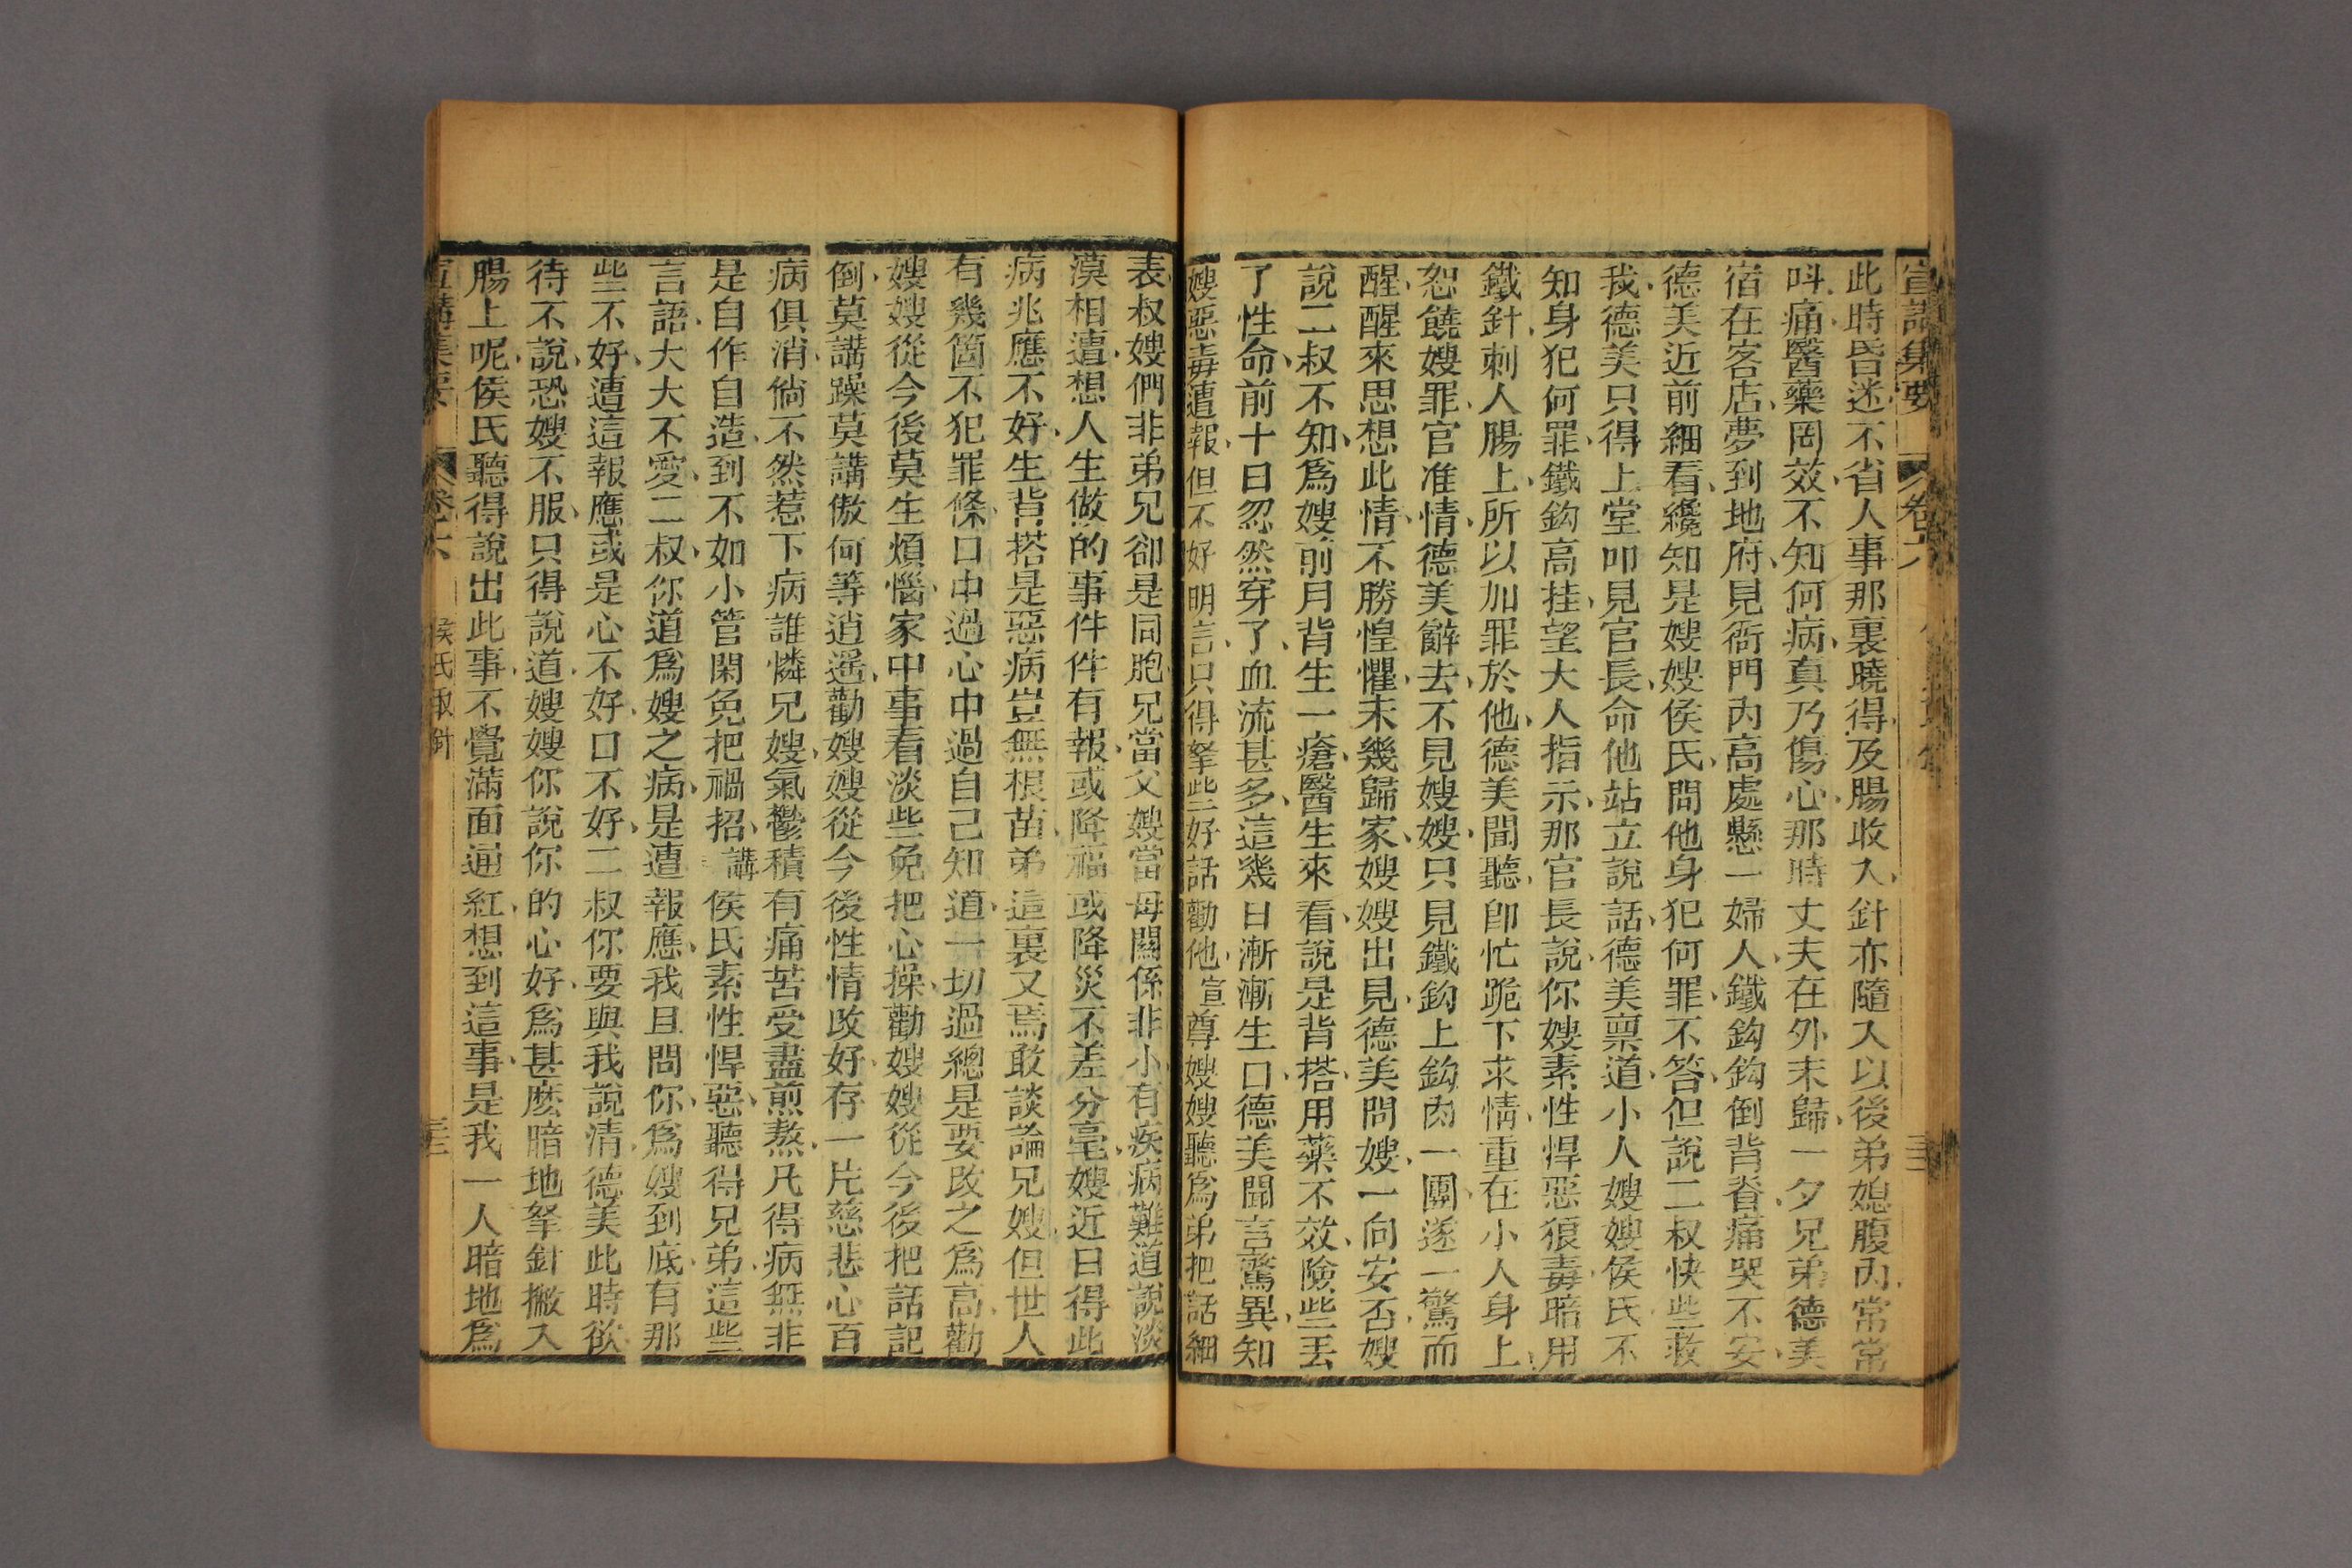 宣講集要 卷六
此時昏迷不省人事那裏曉得及腸收入針亦隨入以後弟媳腹內常常
呌痛醫藥罔效不知何病真乃傷心那時丈夫在外未歸一夕兄弟德美
宿在客店夢到地府見衙門內高處懸一婦人鐵鈎鈎倒背脊痛哭不安
德美近前細看纔知是嫂嫂侯氏問他身犯何罪不答但說二叔快些救
我德美只得上堂叩見官長命他站立說話德美禀道小人嫂嫂侯氏不
知身犯何罪鐵鈎高挂望大人指示那官長說你嫂素性悍惡狠毒暗用
鐵針刺人腸上所以加罪於他德美聞聽卽忙跪下求情重在小人身上
恕饒嫂罪官准情德美辭去不見嫂嫂只見鐵鈎上鈎肉一團遂一驚而
醒醒來思想此情不勝惶懼未幾歸家嫂嫂出見德美問嫂一向安否嫂
說二叔不知爲嫂前月背生一瘡醫生來看說是背搭用藥不效險些丟
了性命前十日忽然穿了血流甚多這幾日漸漸生口德美聞言驚異知
嫂惡毒遭報但不好明言只得拏些好話勸他宣尊嫂嫂聽爲弟把話細
表叔嫂們非弟兄卻是同胞兄當父嫂當母關係非小有疾病難道說淡
漠相遭想人生做的事件件有報或降福或降災不差分毫嫂近日得此
病兆應不好生背搭是惡病豈無根苗弟這裏又焉敢談論兄嫂但世人
有幾箇不犯罪條口中過心中過自己知道一切過總是要改之爲高勸
嫂嫂從今後莫生煩惱家中事看淡些免把心操勸嫂嫂從今後把話記
倒莫講躁莫講傲何等逍遥勸嫂嫂從今後性情改好存一片慈悲心百
病俱消倘不然惹下病誰憐兄嫂氣鬱積有痛苦受盡煎熬凡得病無非
是自作自造到不如小管閑免把禍招講侯氏素性悍惡聽得兄弟這些
言語大大不愛二叔你道爲嫂之病是遭報應我且問你爲嫂到底有那
些不好遭這報應或是心不好口不好二叔你要與我說清德美此時欲
待不說恐嫂不服只得說道嫂嫂你說你的心好爲甚麽暗地拏針搬入
腸上呢侯氏聽得說出此事不覺滿面通紅想到這事是我一人暗地爲
宣講集要 卷六 侯氏取針